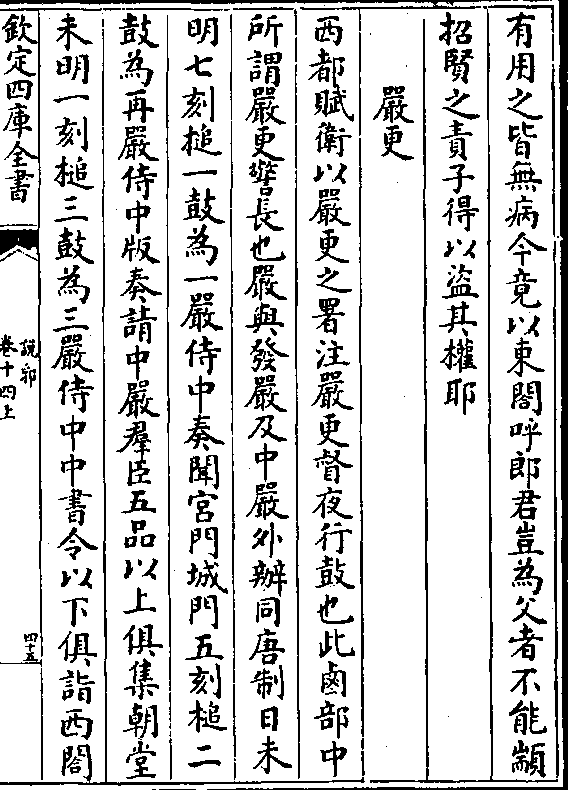 有用之皆無病今竟以東閤呼郎君豈為父者不能顓
招賢之責子得以盜其權耶
嚴更
西都賦衛以嚴更之署注嚴更督夜行鼓也此鹵部中
所謂嚴更警長也嚴與發嚴及中嚴外辦同唐制日未
明七刻槌一鼓為一嚴侍中奏聞宮門城門五刻槌二
鼓為再嚴侍中版奏請中嚴羣臣五品以上俱集朝堂
未明一刻槌三鼓為三嚴侍中中書令以下俱詣西閤
欽定四庫全書
說郛
卷十四上
四十五